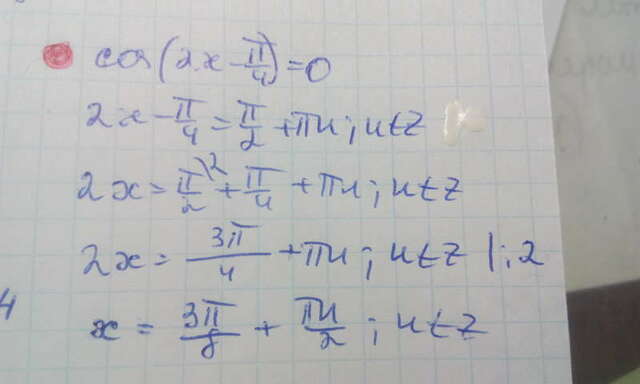 cos(2x - π/4) = 0
2x - π/4 = π/2 + πn; n∈Z
2x = π/2 \2 + π/4 + πn; n∈Z
2x = 3π/4 + πn; n∈Z |:2
4
x = 3π/8 + πn/2; n∈Z